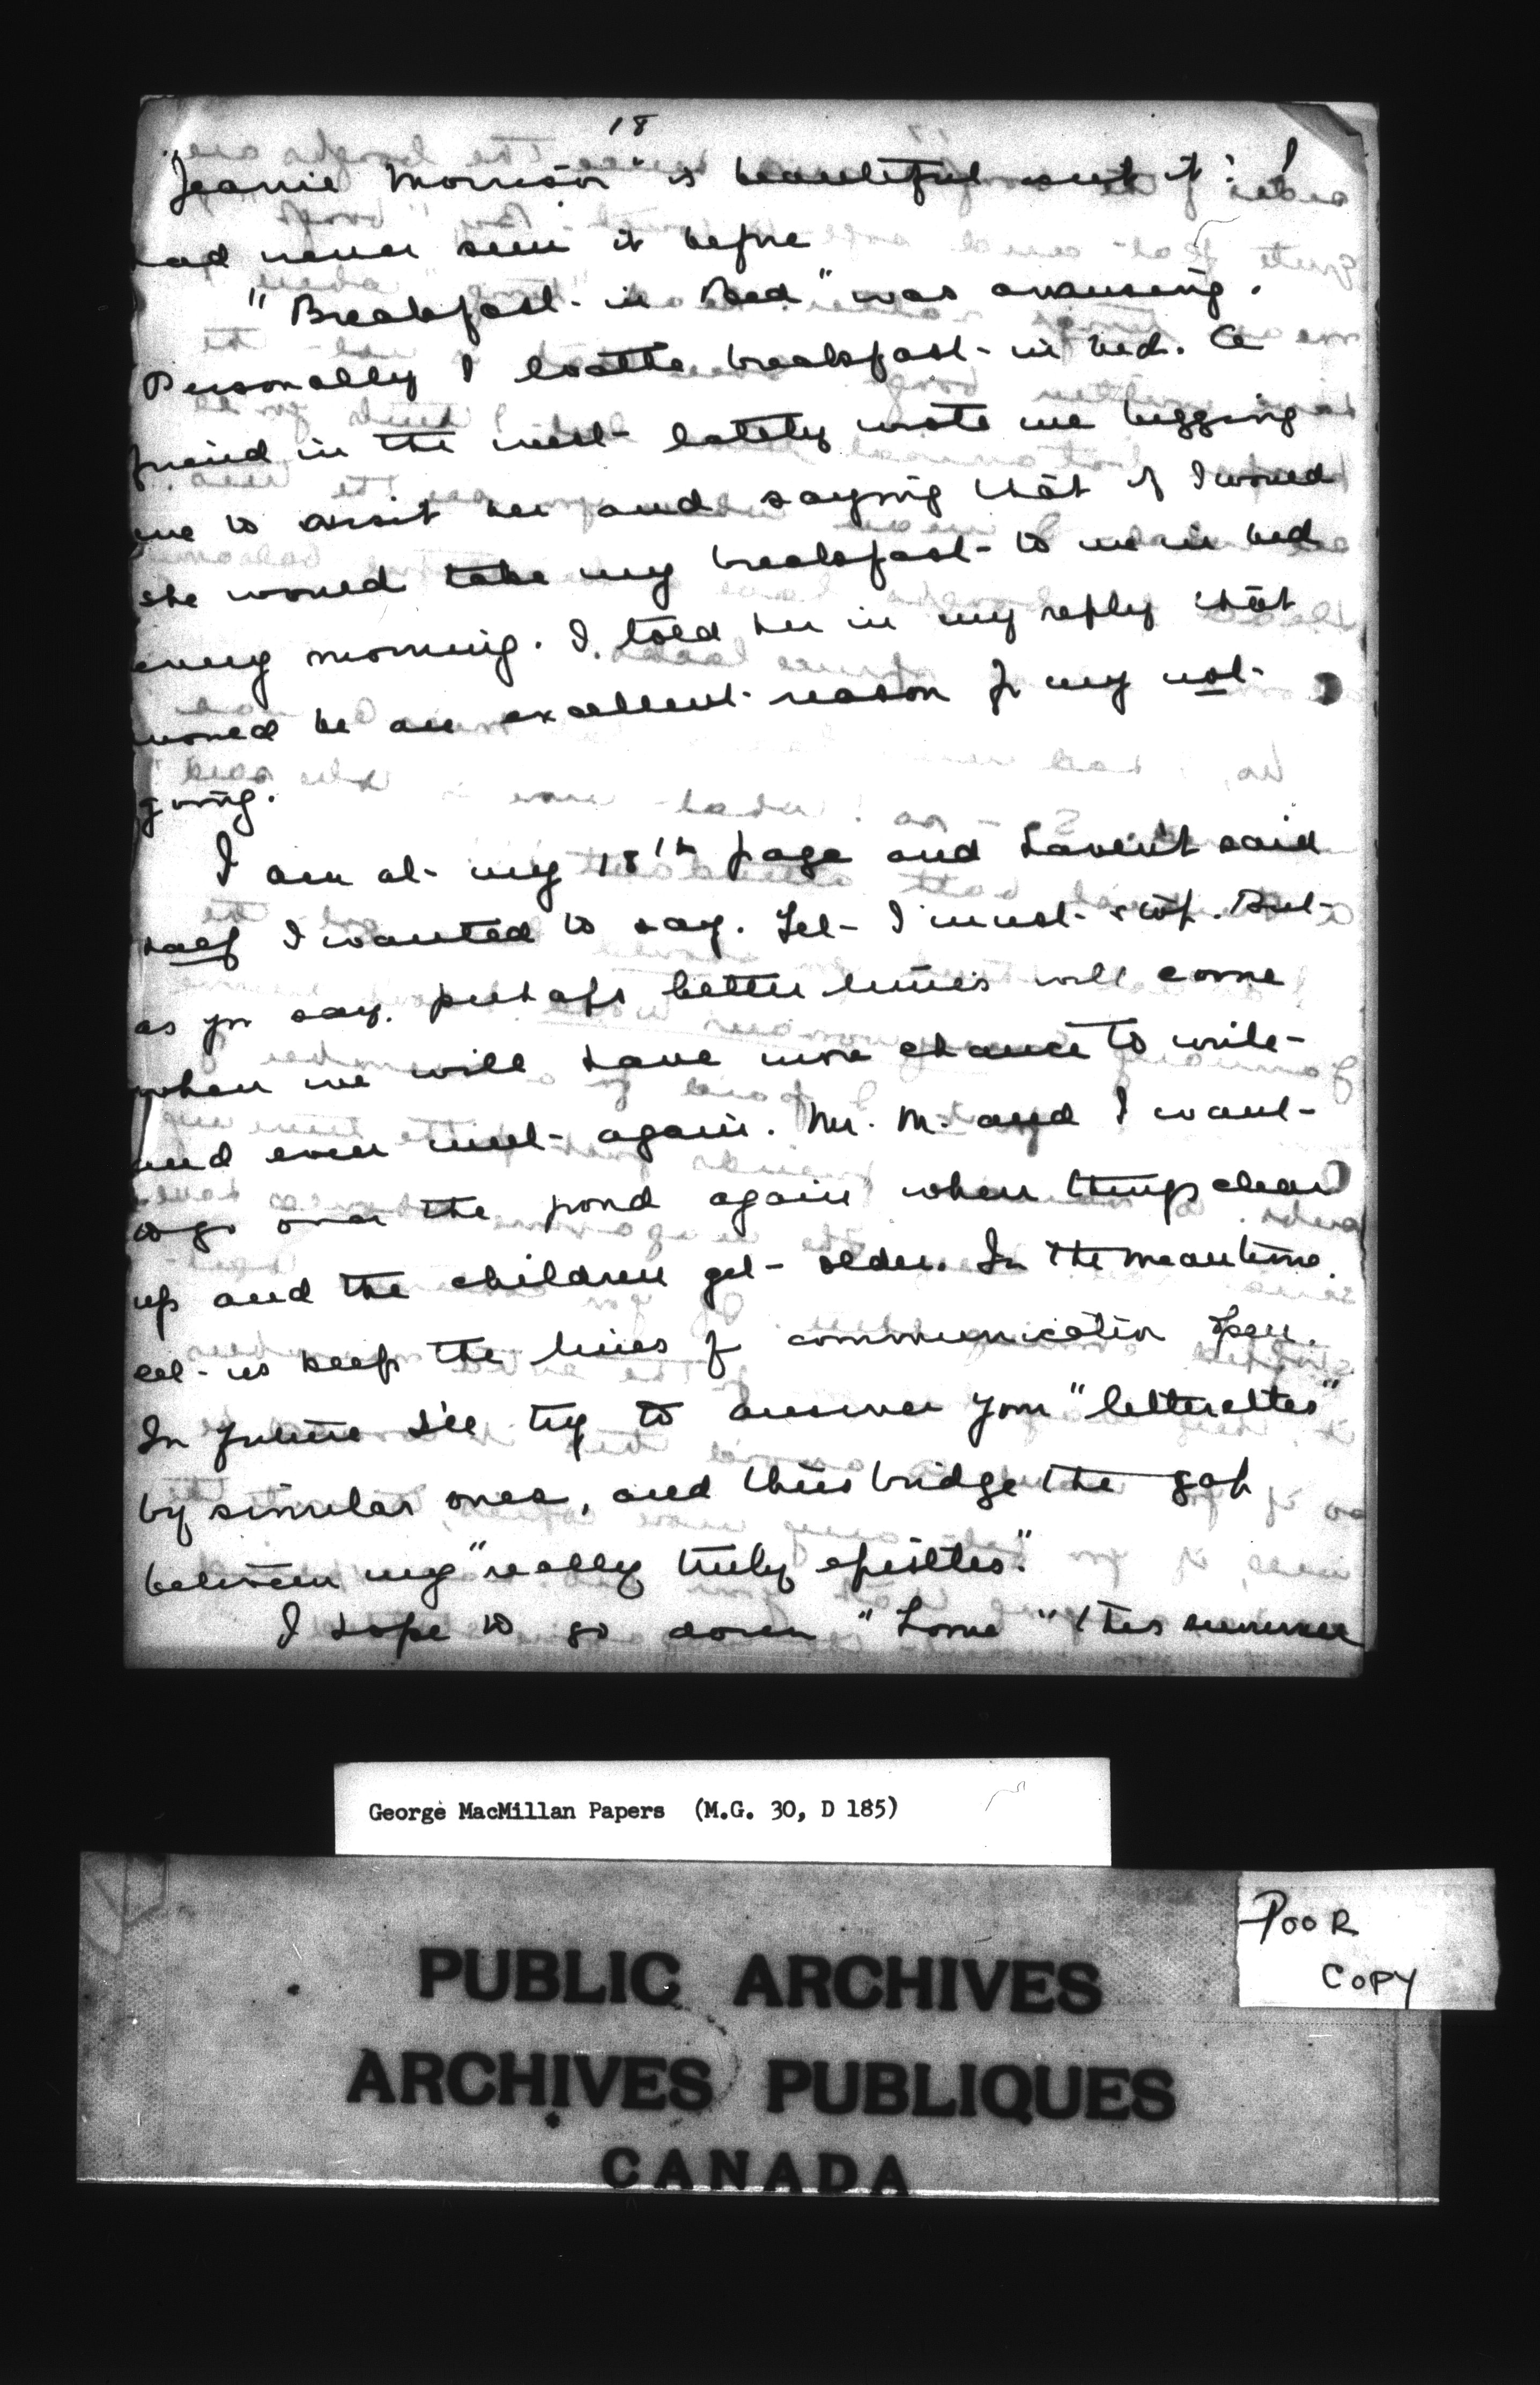 18
"Jeanie Morrison" is beautiful isn't it? I
had never seen it before
"Breakfast in Bed" was amusing.
Personally I loathe breakfast in bed. A
friend in the west lately wrote me begging
me to visit her and saying that if I would
she would take my breakfast to me in bed
every morning. I told her in my reply that
would be an excellent reason for my not
going.
I am at my 18th page and haven't said
half I wanted to say. Yet I must stop. But
as you say, perhaps better times will come
when we will have more chance to write
and even meet again. Mr. M. and I want
to go over the pond again when things clear
up and the children get older. In the meantime
let us keep the lines of communication open.
In future I'll try to answer your "letterettes"
by similar ones, and thus bridge the gap
between my "really truly epistles."
I hope to go down "home" this summer
George MacMillan Papers (M.G. 30, D 185)
POOR
COPY
PUBLIC ARCHIVES
ARCHIVES PUBLIQUES
CANADA